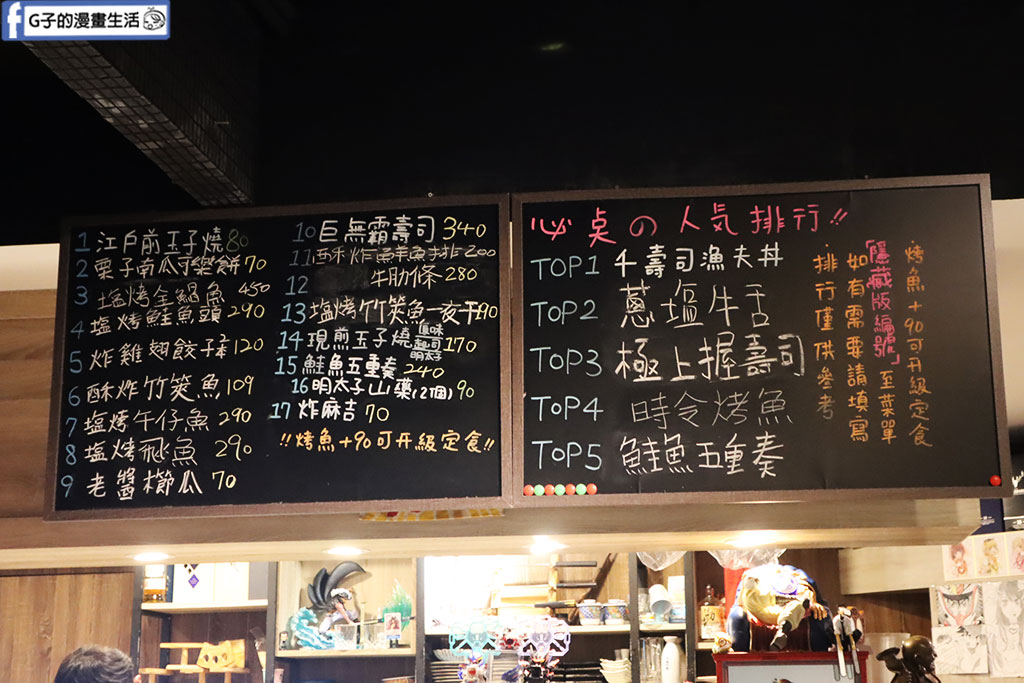 G子的漫畫生活
1 江戶前玉子燒 80
2 栗子南瓜可樂餅 70
3 塩烤全鯧魚 450
4 塩烤鮭魚頭 290
5 炸雞翅餃子 120
6 酥炸竹筴魚 109
7 塩烤午仔魚 290
8 塩烤飛魚 290
9 老醬櫛瓜 70
10 巨無霸壽司 340
11 酥炸 魚排 200
12 牛肋條 280
13 塩烤竹筴魚一夜干 190
14 現煎玉子燒 原味 起司 明太子 170
15 鮭魚五重奏 240
16 明太子山藥(2個) 90
17 炸麻吉 70
!!烤魚+90可升級定食!!
必桌の人気排行!!
TOP1 千壽司漁夫丼
TOP2 蔥塩牛舌
TOP3 極上握壽司
TOP4 時令烤魚
TOP5 鮭魚五重奏
烤魚+90可升級定食
「隱藏版編號」至菜單
如有需要請填寫
排行僅供參考